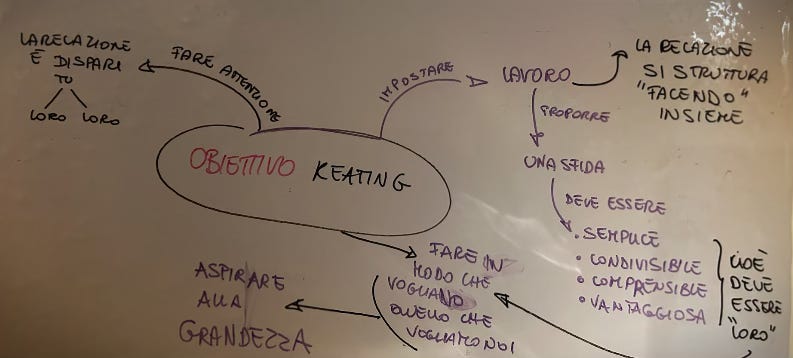 LA RELAZIONE
È DISPARI
TU
LORO LORO
FARE ATTENZIONE
IMPOSTARE
LAVORO
LA RELAZIONE
SI STRUTTURA
"FACENDO"
INSIEME
PROPORRE
UNA SFIDA
DEVE ESSERE
• SEMPLICE
• CONDIVISIBILE
• COMPRENSIBILE
• VANTAGGIOSA
CIOÈ
DEVE
ESSERE
"LORO"
OBIETTIVO KEATING
FARE IN
MODO CHE
VOGLIANO
QUELLO CHE
VOGLIAMO NOI
ASPIRARE
ALLA
GRANDEZZA